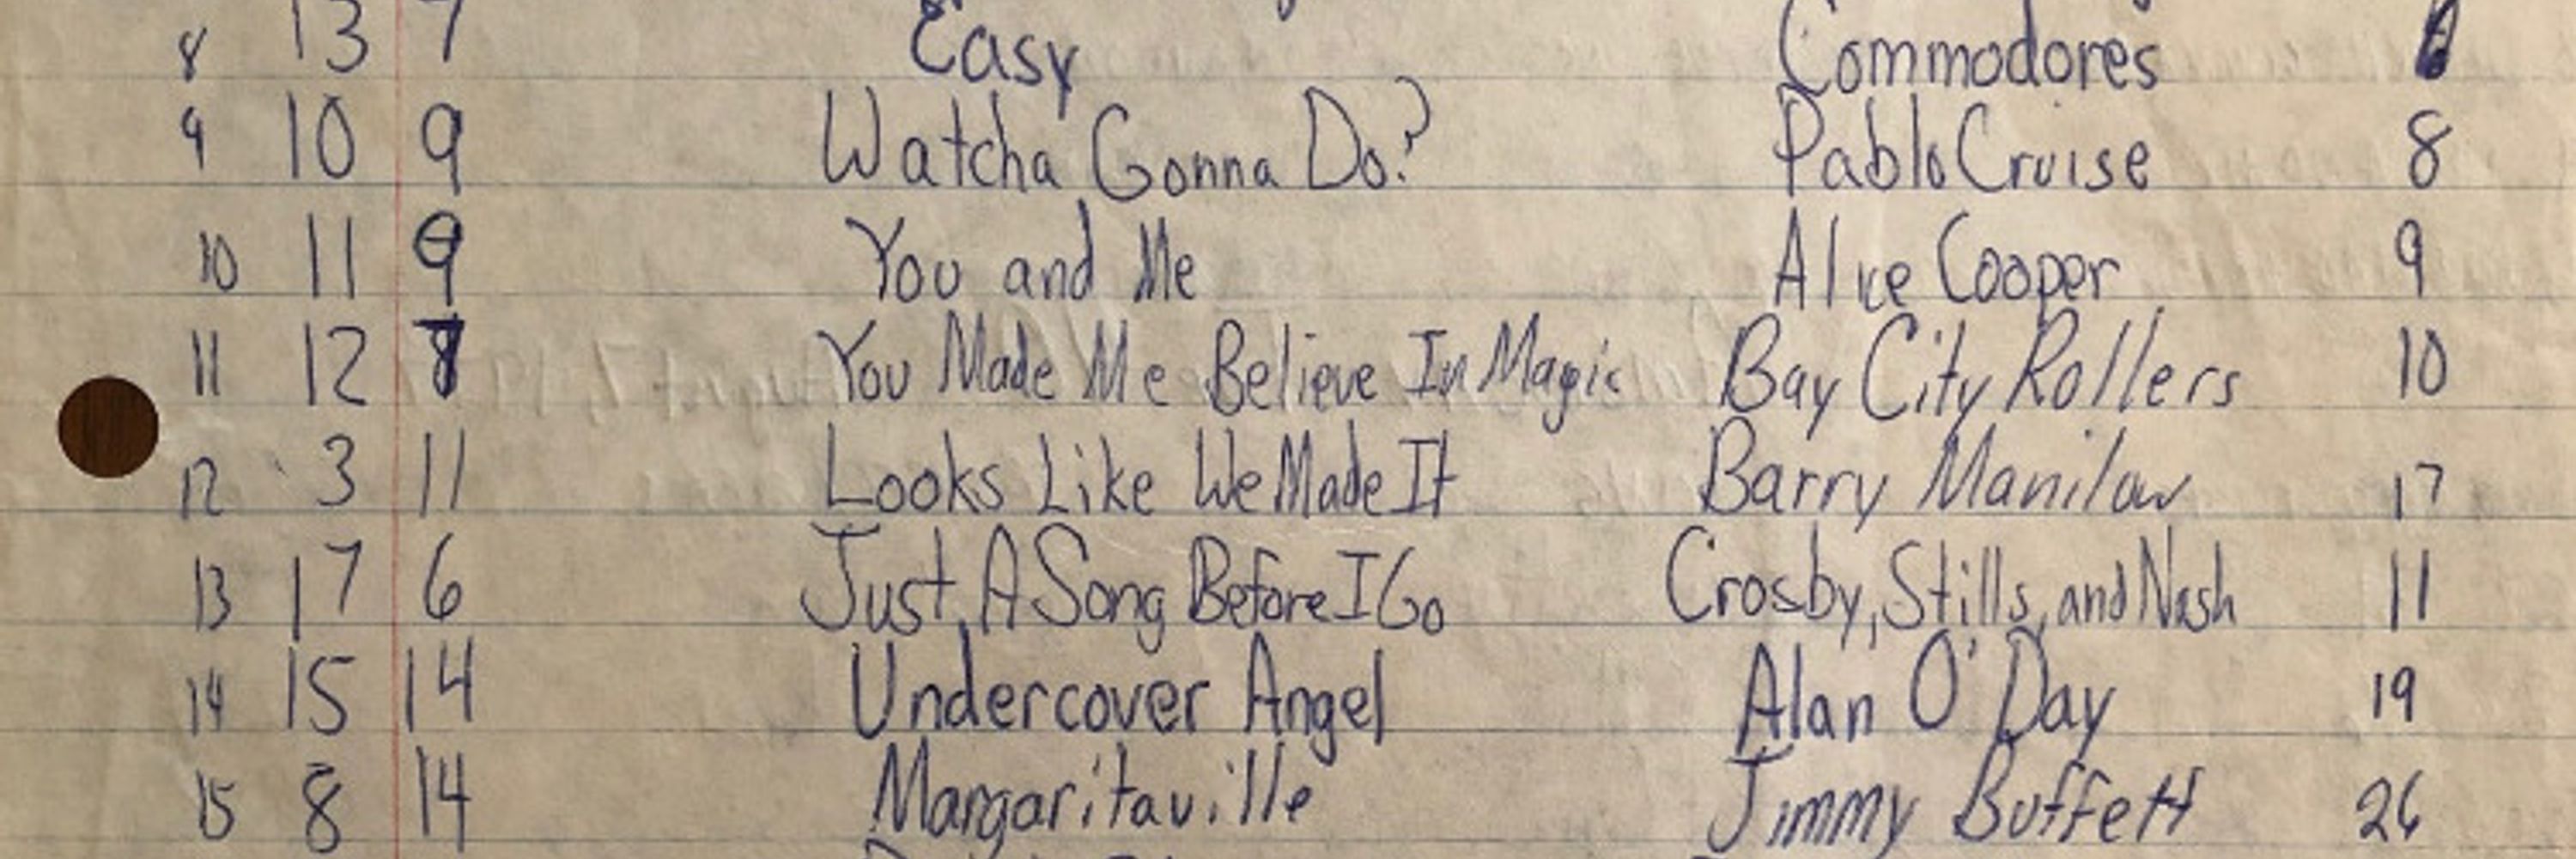 8 13 7 Easy Commodores
9 10 9 Watcha Gonna Do? Pablo Cruise 8
10 11 9 You and Me Alice Cooper 9
11 12 You Made Me Believe In Magic Bay City Rollers 10
12 3 11 Looks Like We Made It Barry Manilow 17
13 17 6 Just A Song Before I Go Crosby, Stills, and Nash 11
14 15 14 Undercover Angel Alan O'Day 19
15 8 14 Margaritaville Jimmy Buffett 26